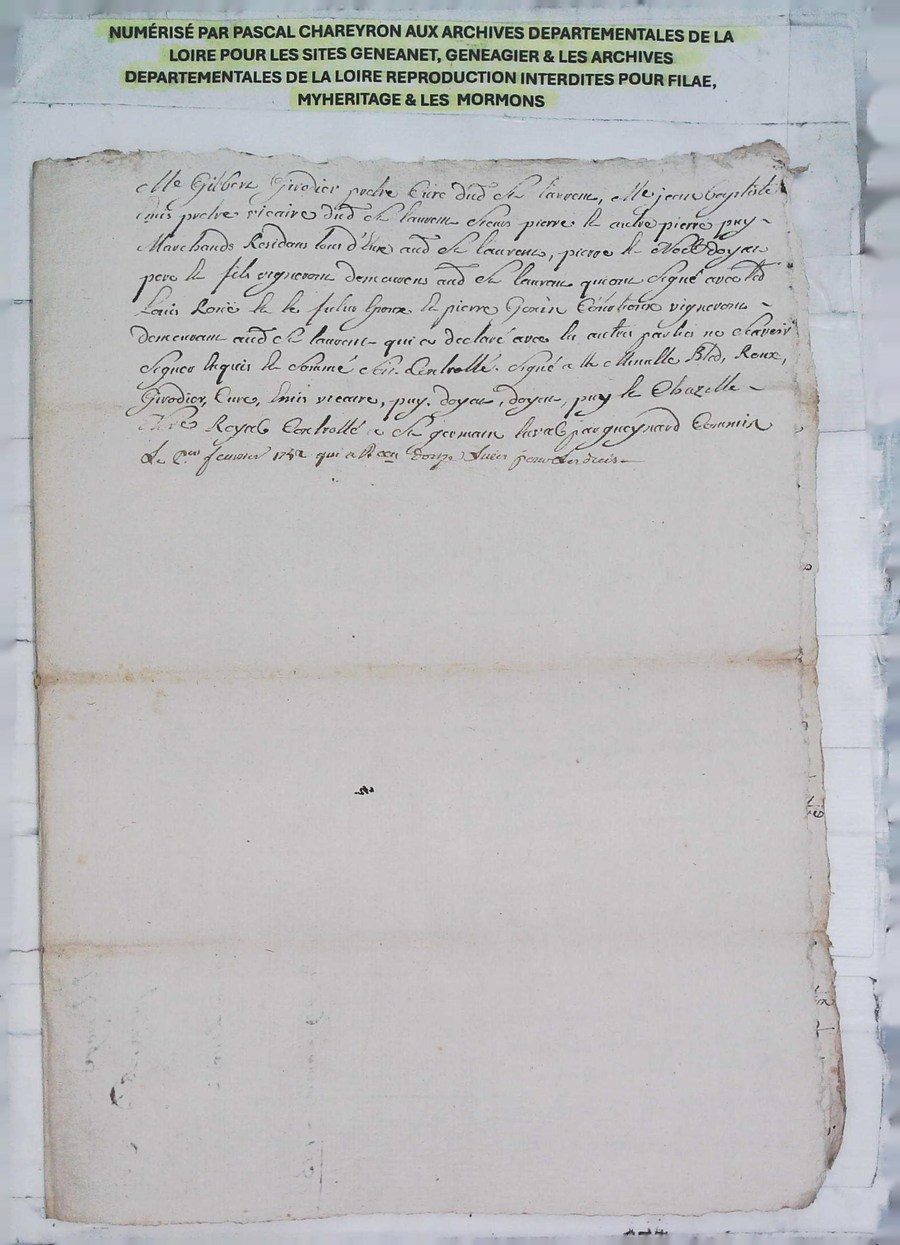 NUMÉRISÉ PAR PASCAL CHAREYRON AUX ARCHIVES DEPARTEMENTALES DE LA
LOIRE POUR LES SITES GENEANET, GENEAGIER & LES ARCHIVES
DEPARTEMENTALES DE LA LOIRE REPRODUCTION INTERDITES POUR FILAE,
MYHERITAGE & LES MORMONS
Me Gilbert Girodier pretre Curé dud St laurent, Me jean baptiste
pretre vicaire dud St laurent Sieurs pierre et autre pierre puy
Marchands Residans tous d'Eux aud St laurent, pierre et Noël doyat
pere et fils vignerons demeurens aud St laurent qui ont signé avec led
Louis et le futur Epoux et pierre vigneron
demeurant aud St laurent qui a declaré avec les autres parties ne Scavoir
Signer Requis et Sommé Controllé. Signé a la Minutte Roux,
Girodier, Curé, vicaire, puy, doyat, doyat, puy et Chazelle
Royal Controllé a St germain laval par gueynard Commis
Le fevrier qui a Recu pour